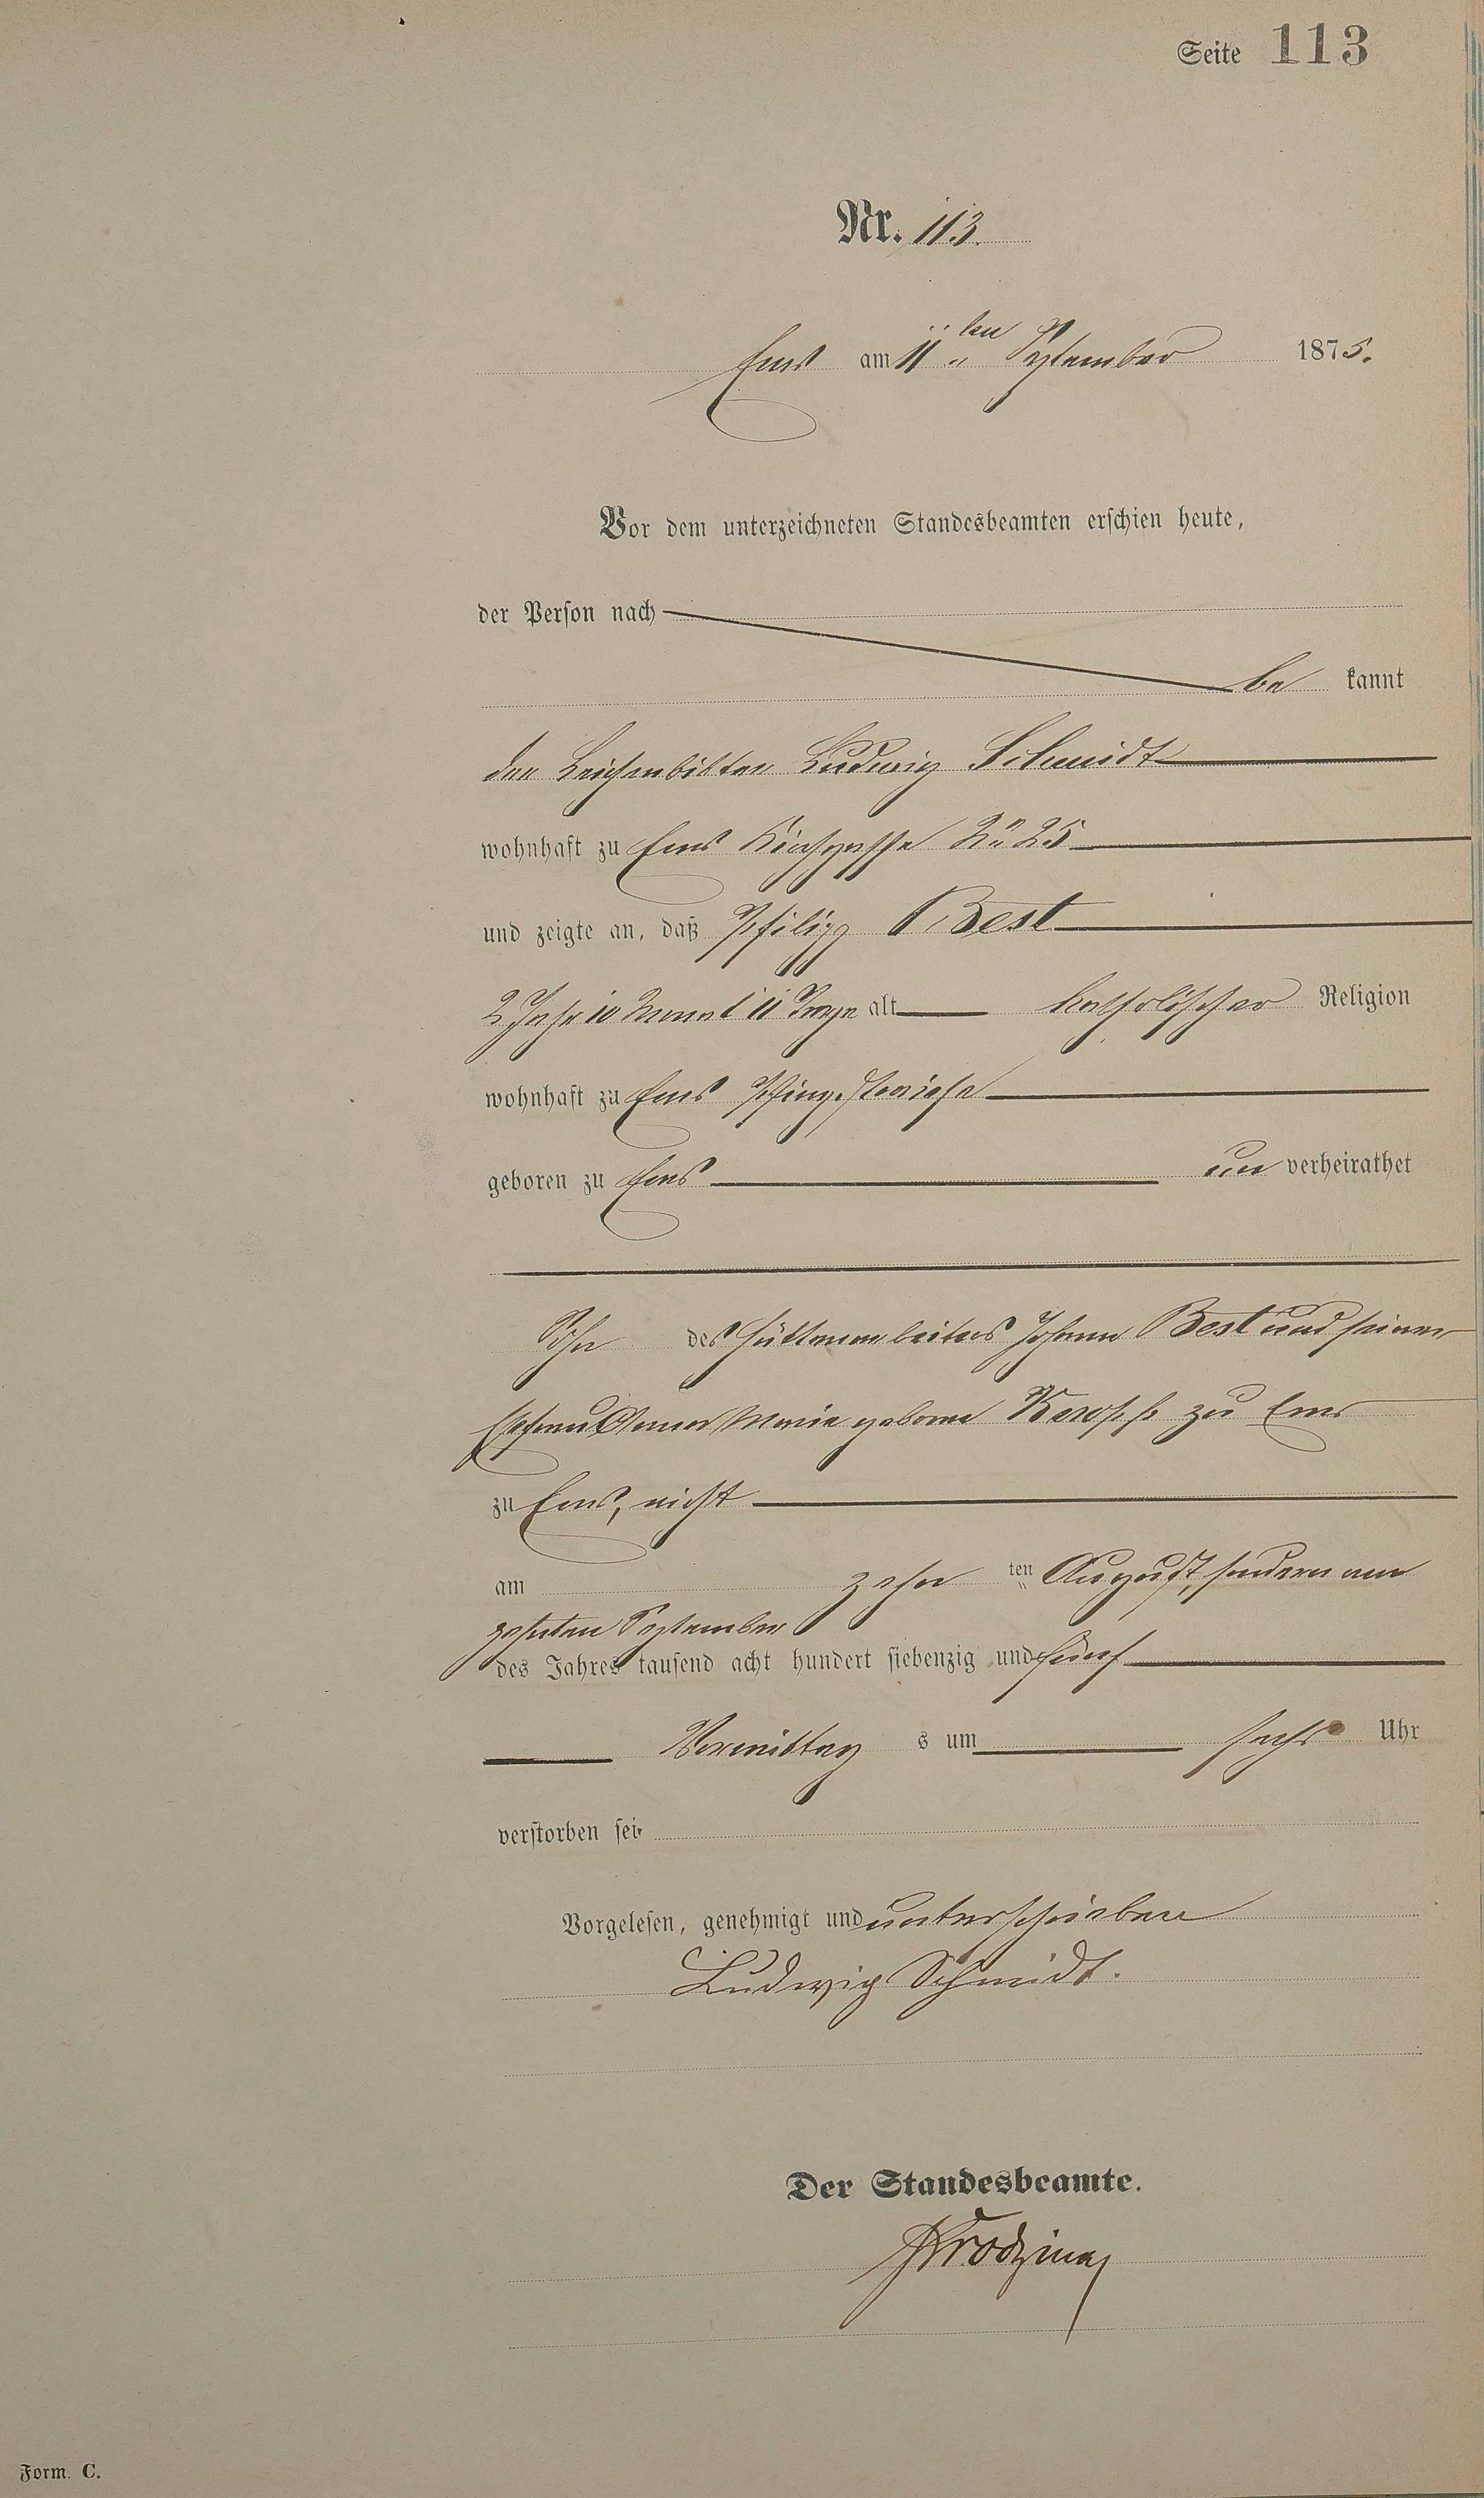 Seite 113
Nr. 113.
Ems am 11ten September 1875.
Vor dem unterzeichneten Standesbeamten erschien heute,
der Person nach
be kannt
der Leichenbitter Ludwig Schmidt
wohnhaft zu Ems Kirchgasse No 25
und zeigte an, daß Philipp Best
2 Jahr 10 Monat 11 Tage alt katholischer Religion
wohnhaft zu Ems Pfingstwiese
geboren zu Ems un verheirathet
Sohn des Hüttenarbeiters Johann Best und seiner
Ehefrau Anna Maria geborne zu Ems
zu Ems, nicht
am zehn ten August, sondern am
zehnten September
des Jahres tausend acht hundert siebenzig und fünf
Vormittag s um sechs Uhr
verstorben sei
Vorgelesen, genehmigt und unterschrieben
Ludwig Schmidt.
Der Standesbeamte.
Form. C.